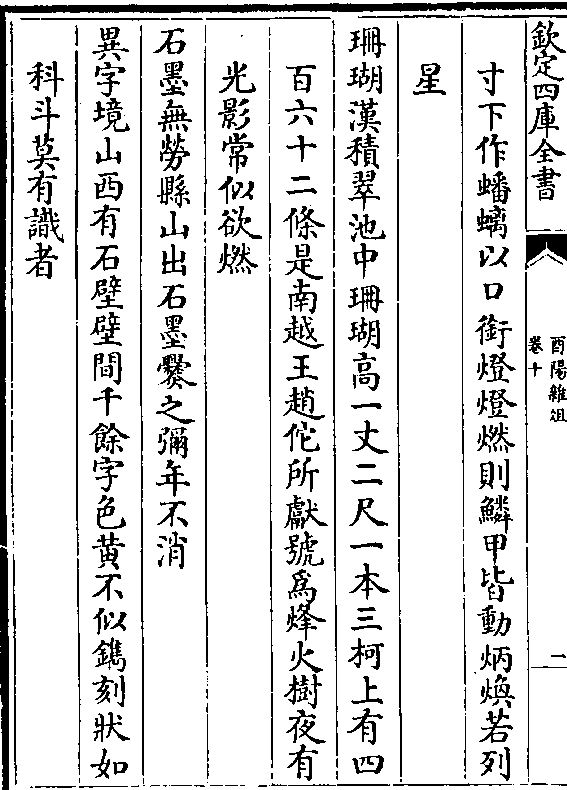 欽定四庫全書
酉陽雜俎
卷十
二
寸下作蟠螭以口銜燈燈燃則鱗甲皆動炳煥若列
星
珊瑚漢積翠池中珊瑚高一丈二尺一本三柯上有四
百六十二條是南越王趙佗所獻號為烽火樹夜有
光影常似欲燃
石墨無勞縣山出石墨爨之彌年不消
異字境山西有石壁壁間千餘字色黄不似鐫刻狀如
科斗莫有識者